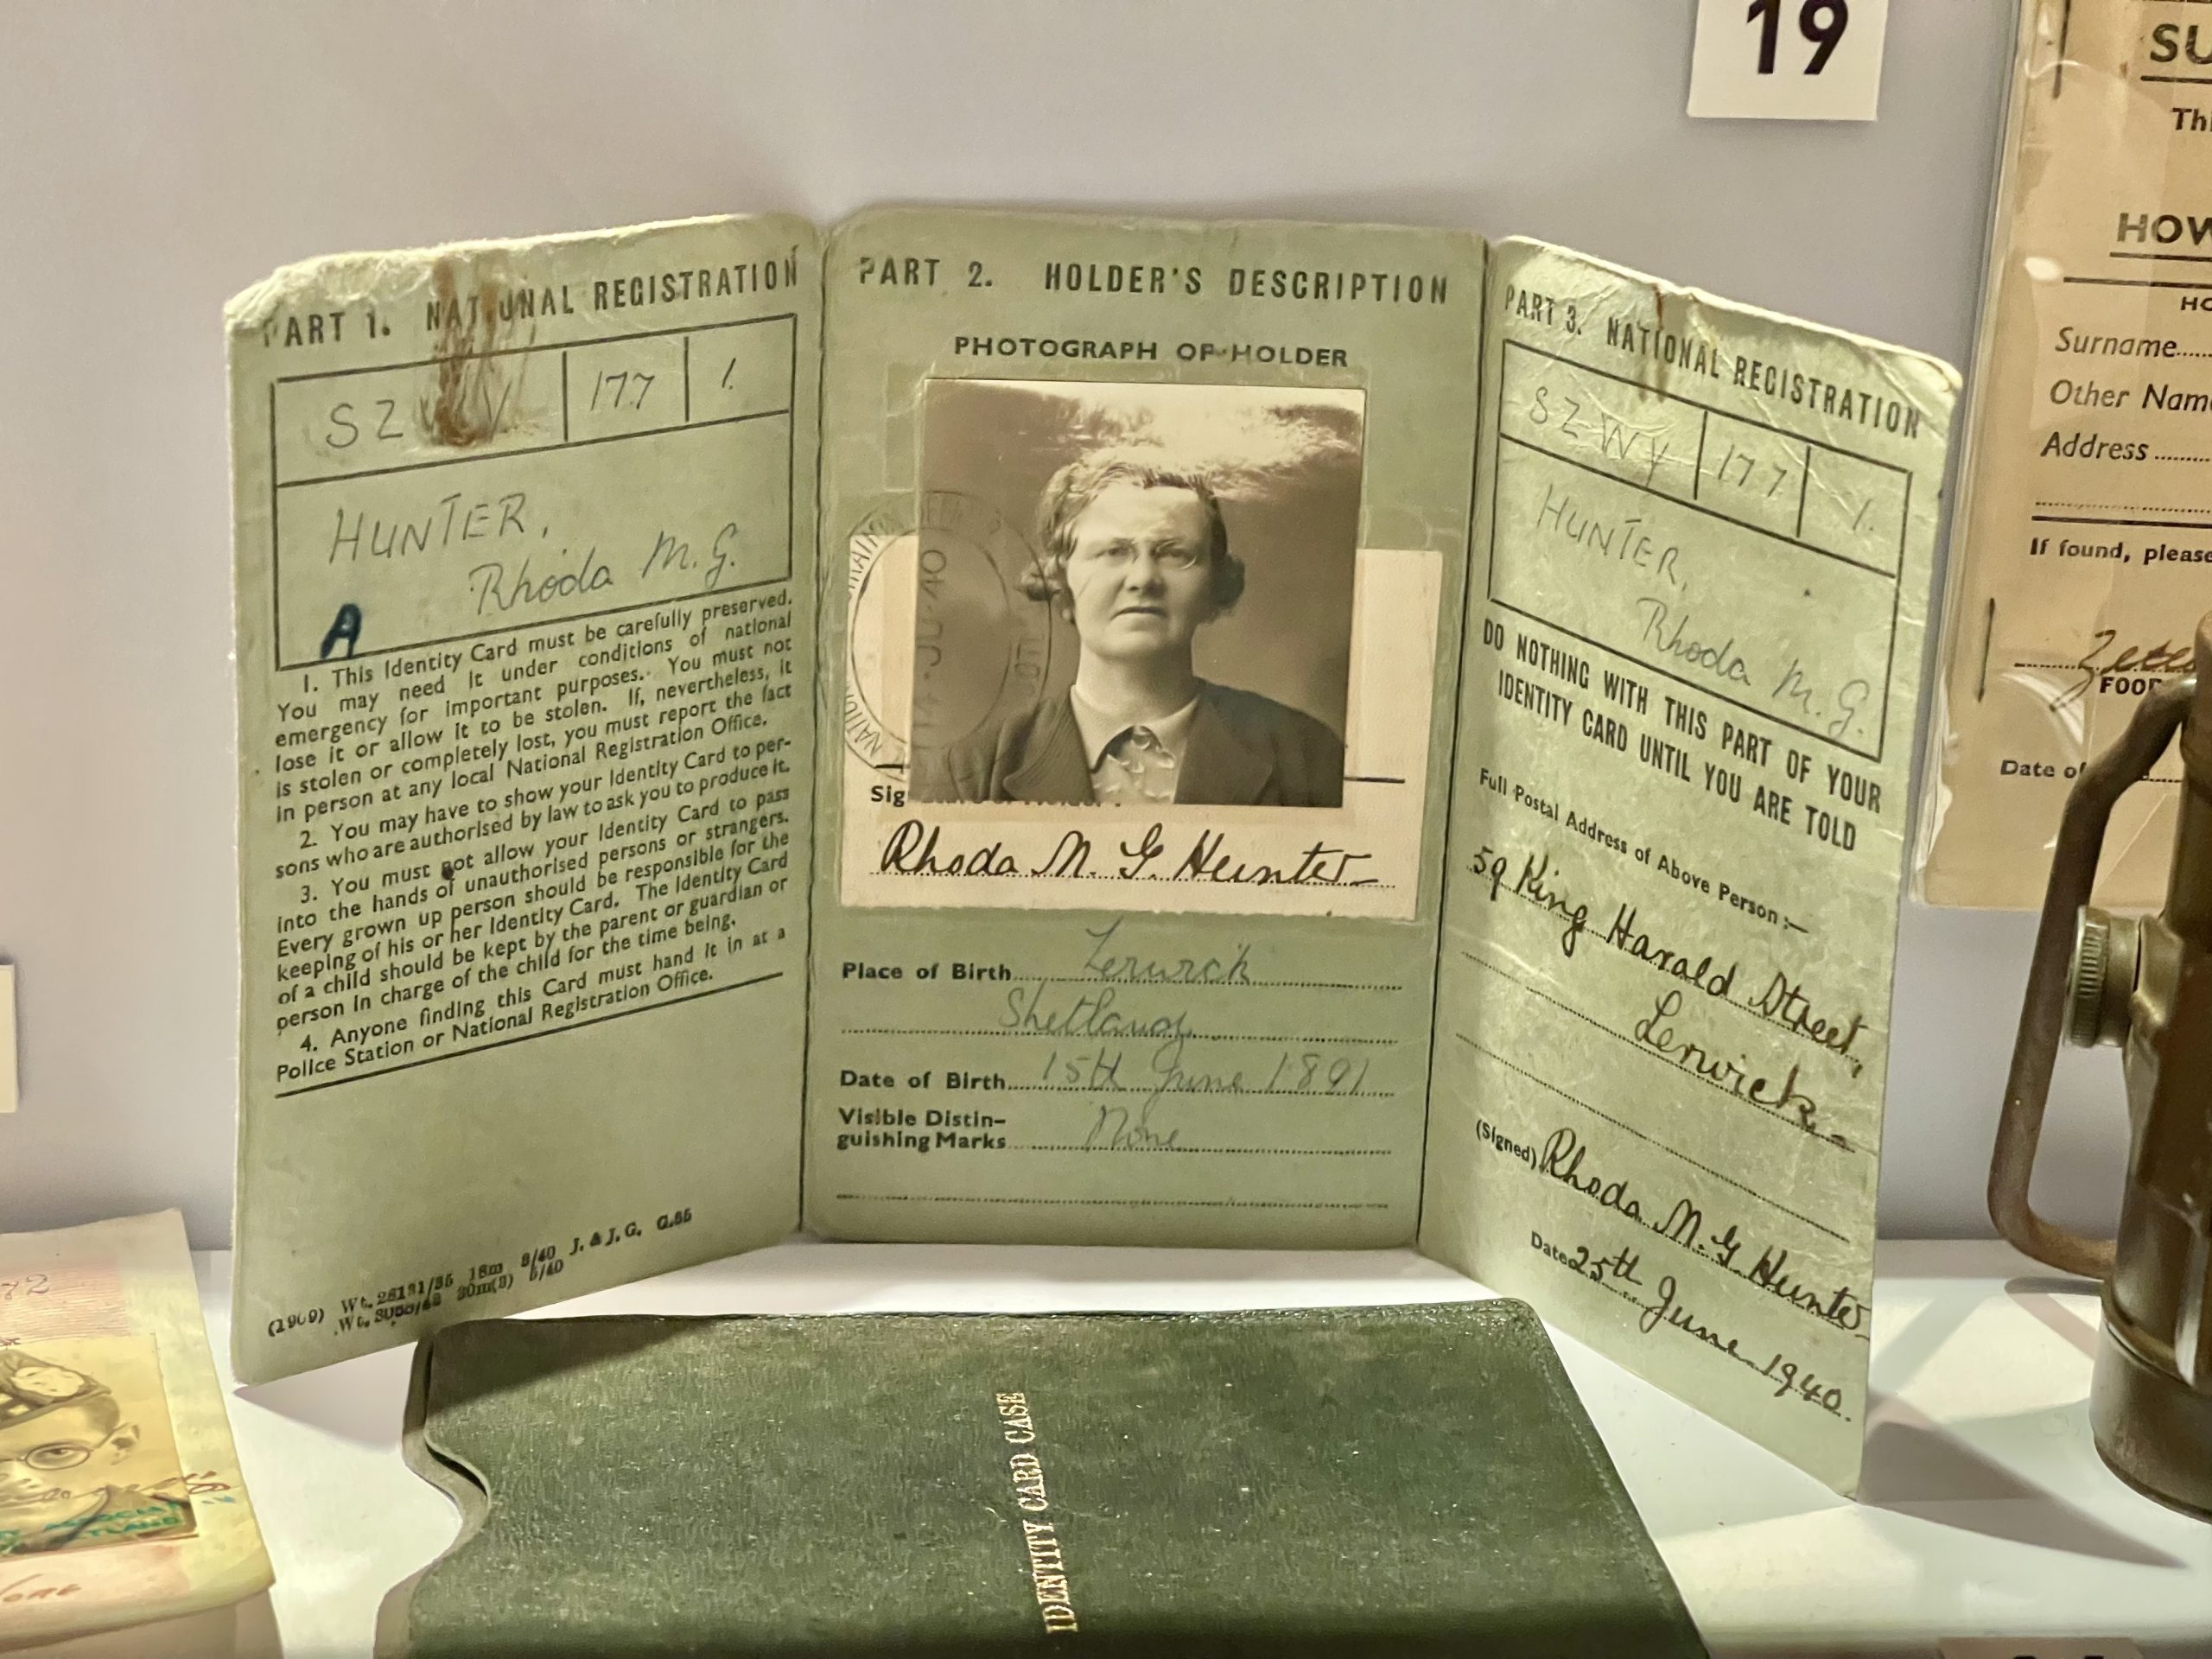 19
PART 1. NATIONAL REGISTRATION
SZ 177 1.
HUNTER,
Rhoda M. G.
A
1. This Identity Card must be carefully preserved.
You may need it under conditions of national
emergency for important purposes. You must not
lose it or allow it to be stolen. If, nevertheless, it
is stolen or completely lost, you must report the fact
in person at any local National Registration Office.
2. You may have to show your Identity Card to per-
sons who are authorised by law to ask you to produce it.
3. You must not allow your Identity Card to pass
into the hands of unauthorised persons or strangers.
Every grown up person should be responsible for the
keeping of his or her Identity Card. The Identity Card
of a child should be kept by the parent or guardian or
person in charge of the child for the time being.
4. Anyone finding this Card must hand it in at a
Police Station or National Registration Office.
Wt. 18m J. & J.G.
PART 2. HOLDER'S DESCRIPTION
PHOTOGRAPH OF HOLDER
Rhoda M. G. Hunter
Place of Birth Lerwick
Shetland
Date of Birth 15th June 1891
Visible Distin-
guishing Marks None
PART 3. NATIONAL REGISTRATION
SZWY 177 1.
HUNTER,
Rhoda M. G.
DO NOTHING WITH THIS PART OF YOUR
IDENTITY CARD UNTIL YOU ARE TOLD
Full Postal Address of Above Person :—
59 King Harald Street,
Lerwick
(Signed) Rhoda M. G Hunter
Date 25th June 1940.
IDENTITY CARD CASE
Surname
Other Nam
Address
If found, please
Date of